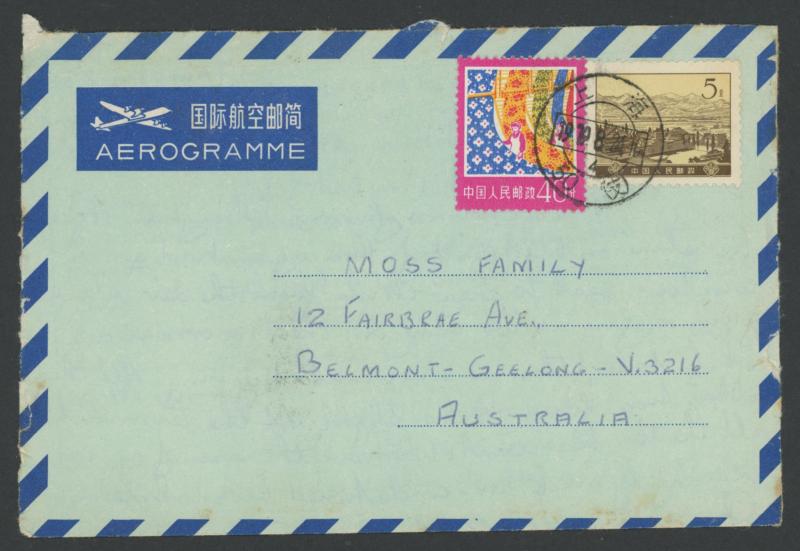 国际航空邮简
AEROGRAMME
中国人民邮政 40分
5分
中国人民邮政
上海
MOSS FAMILY
12 FAIRBRAE AVE.,
BELMONT-GEELONG-V.3216
AUSTRALIA